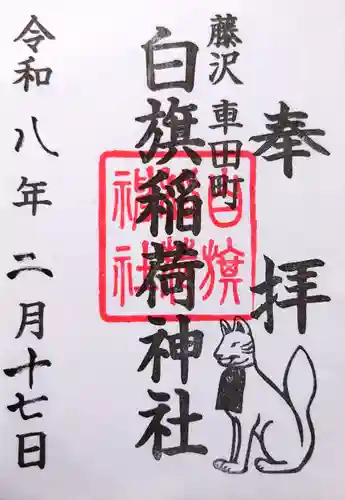 奉拝
藤沢 車田町
白旗稲荷神社
白旗稲荷神社
令和八年二月十七日